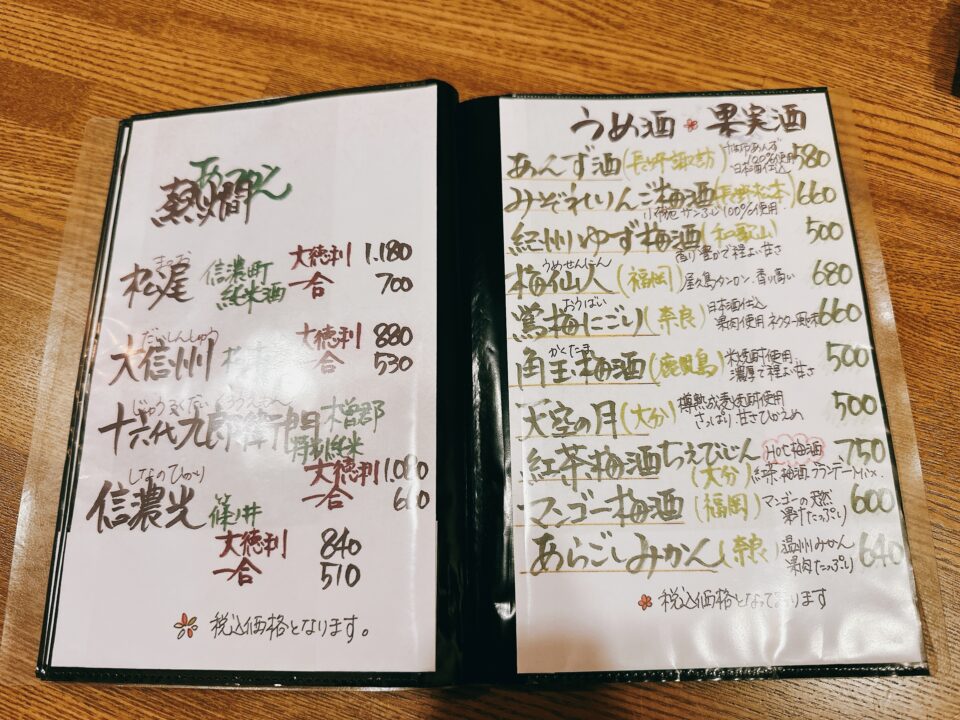 あつかん
熱燗
まつお
松尾 信濃町 純米酒 大徳利 1.180
一合 700
だいしんしゅう
大信州 大徳利 880
一合 530
十六代九郎右衛門 木曽郡 特別純米
大徳利 1.080
一合
しなのひかり
信濃光 篠ノ井
大徳利 840
一合 510
税込価格となります。
うめ酒 果実酒
あんず酒(長野 諏訪) 100%使用 日本酒仕込 580
みぞれりんご梅酒(長野 松本) 660
サンふじ100%使用
紀州ゆず梅酒(和歌山) 500
香り豊かで程よい甘さ
うめせんにん
梅仙人(福岡) 屋久島タンカン、香り高い 680
おうばい
鶯梅にごり(奈良) 日本酒仕込 果肉使用 ネクター風味 660
かくたま
角玉梅酒(鹿児島) 米焼酎使用 濃厚で程よい甘さ 500
天空の月(大分) 樽熟成麦焼酎使用 さっぱり、甘さひかえめ 500
紅茶梅酒ちえびじん HOT梅酒 750
(大分) 紅茶梅酒ブランデーMix
マンゴー梅酒(福岡) マンゴーの天然果汁たっぷり) 600
あらごしみかん(奈良) 温州みかん 果肉たっぷり) 640
税込価格となっております